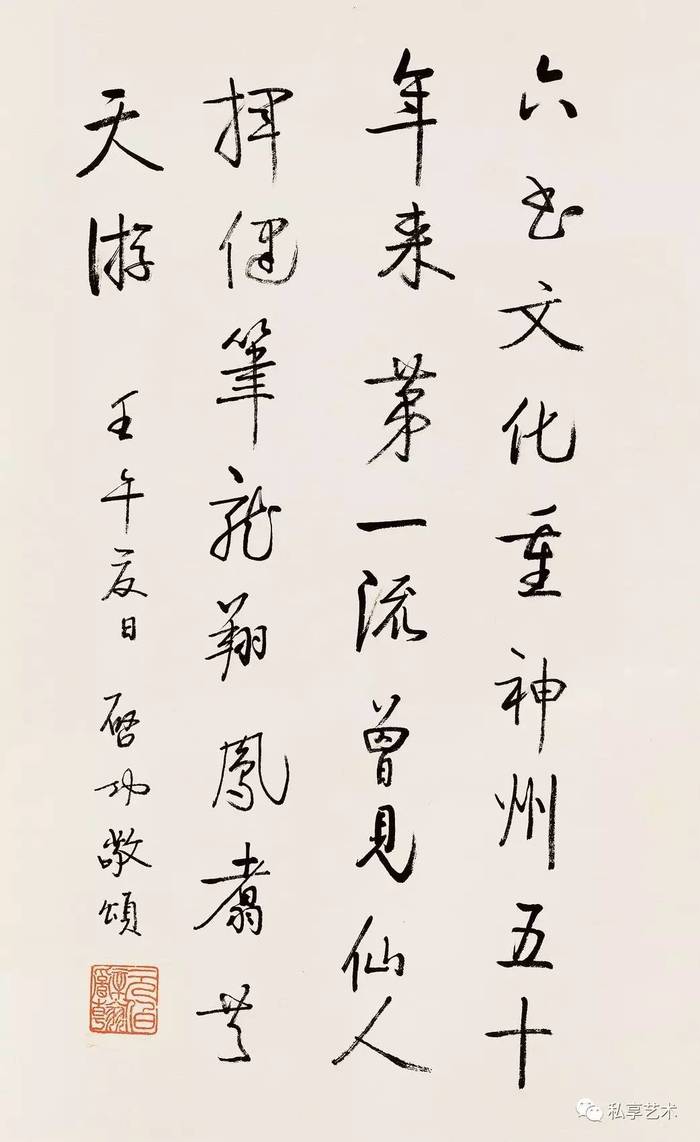 六书文化重神州五十
年来第一流曾見仙人
揮健筆龙翔鳳翥共
天游 壬午夏日 啓功敬頌
私享艺术